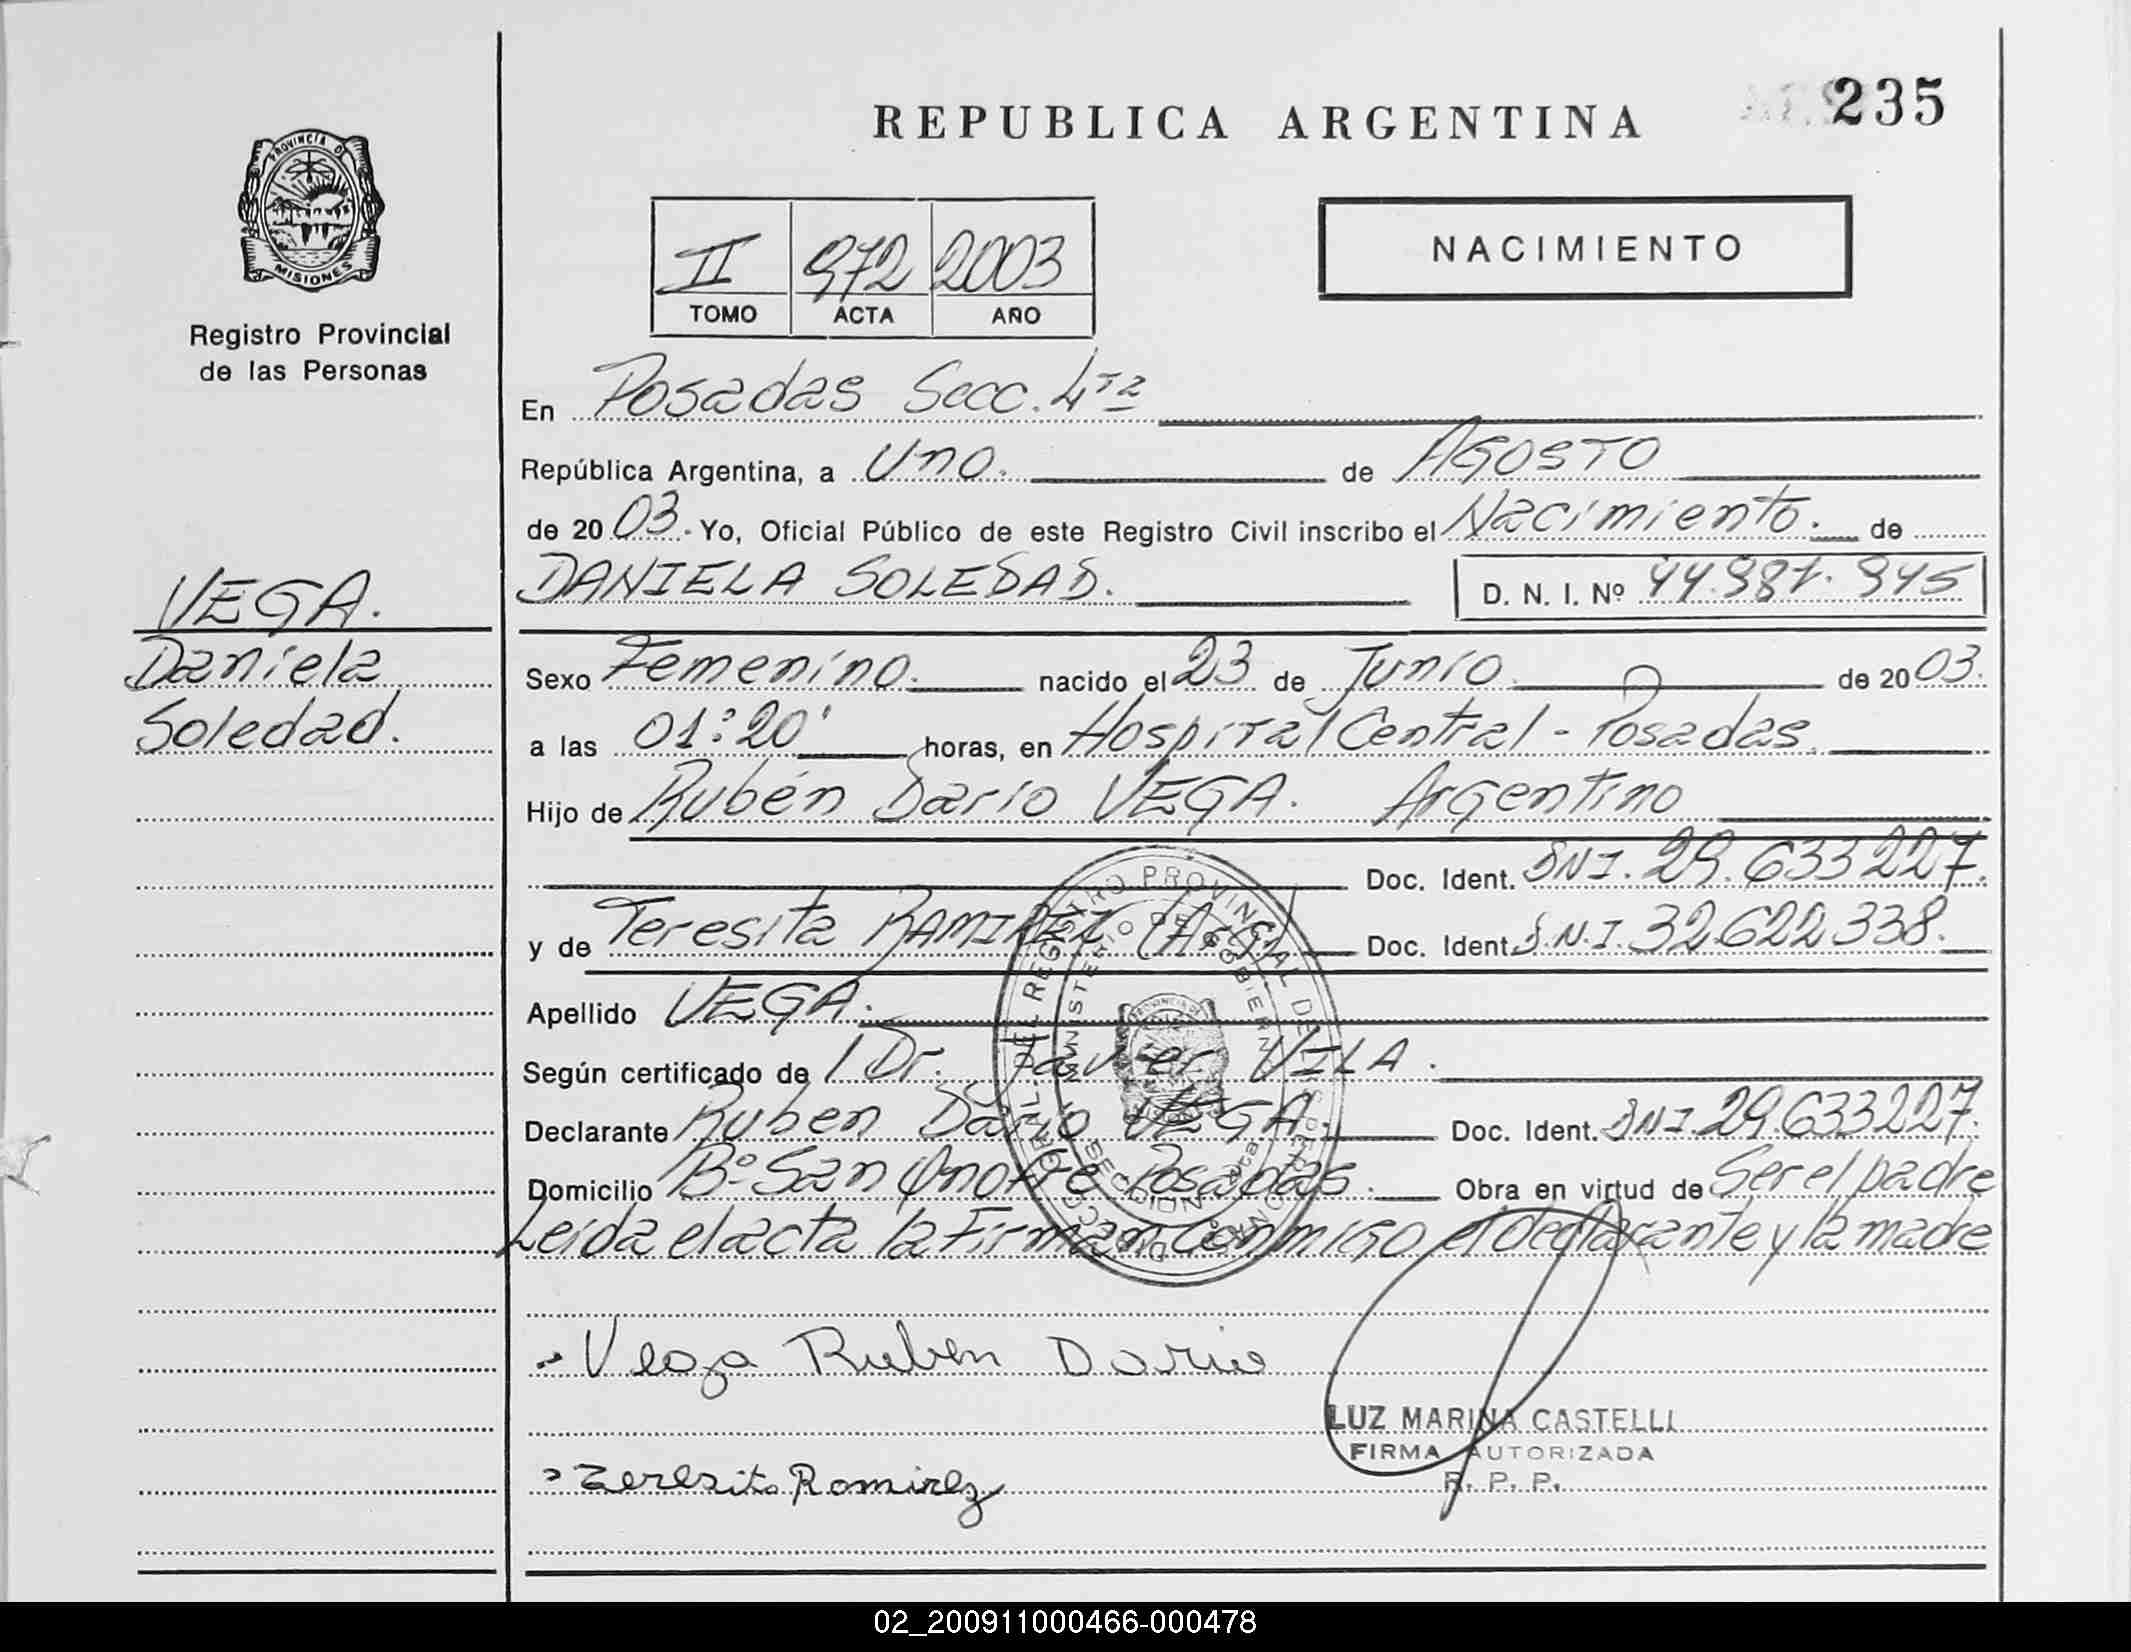 REPUBLICA ARGENTINA
235
PROVINCIA DE
MISIONES
Registro Provincial
de las Personas
II 972 2003
TOMO ACTA AÑO
NACIMIENTO
En Posadas Secc. 4ta
República Argentina, a Uno. de AGOSTO
de 20 03. Yo, Oficial Público de este Registro Civil inscribo el Nacimiento. de
DANIELA SOLEDAD. D. N. I. Nº
VEGA.
Daniela
Soledad.
Sexo Femenino. nacido el 23 de Junio de 20 03.
a las 01:20' horas, en Hospital Central - Posadas.
Hijo de Rubén Dario VEGA. Argentino
Doc. Ident. DNI. 29.633227.
y de Teresita RAMIREZ (Arg) Doc. Ident. D.N.I. 32.622338.
Apellido VEGA.
Según certificado de l Dr. Javier VILA.
Declarante Ruben Dario VEGA. Doc. Ident. DNI 29.633227.
Domicilio Bº San Onofre Posadas. Obra en virtud de Ser el padre
Leida el acta la Firman Conmigo el declarante y la madre
Vega Ruben Dario
LUZ MARINA CASTELLI
FIRMA AUTORIZADA
R. P. P.
Teresita Ramirez
02_200911000466-000478